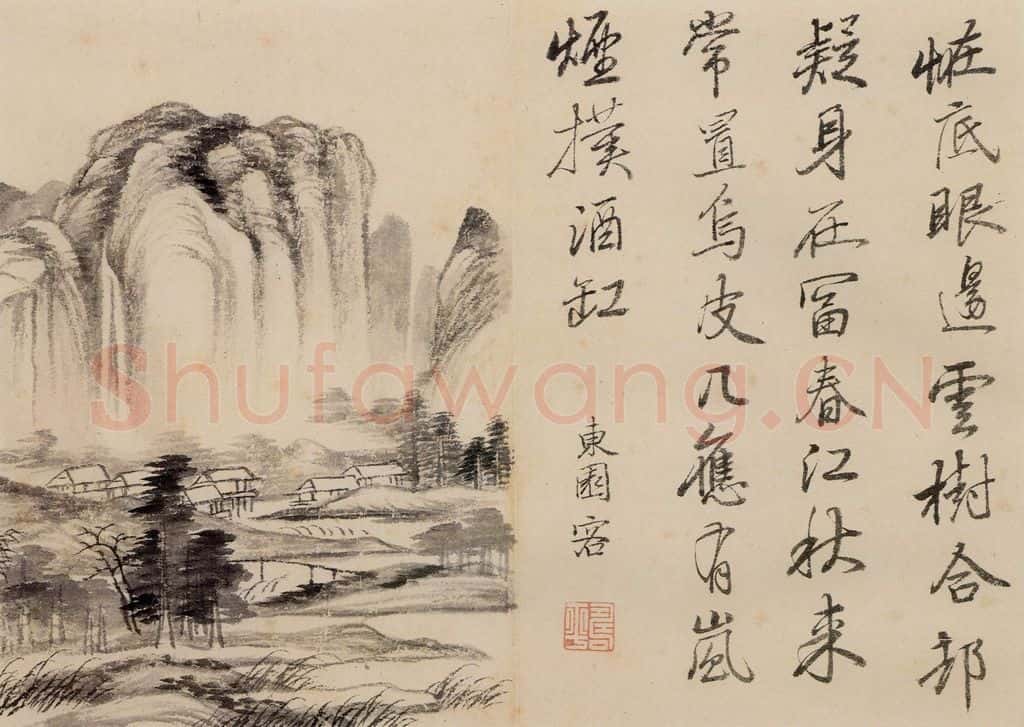 恠底眼邊雲樹合却
疑身在冨春江秋来
常置烏皮几應有嵐
煙撲酒缸
東園客
Shufawang.CN